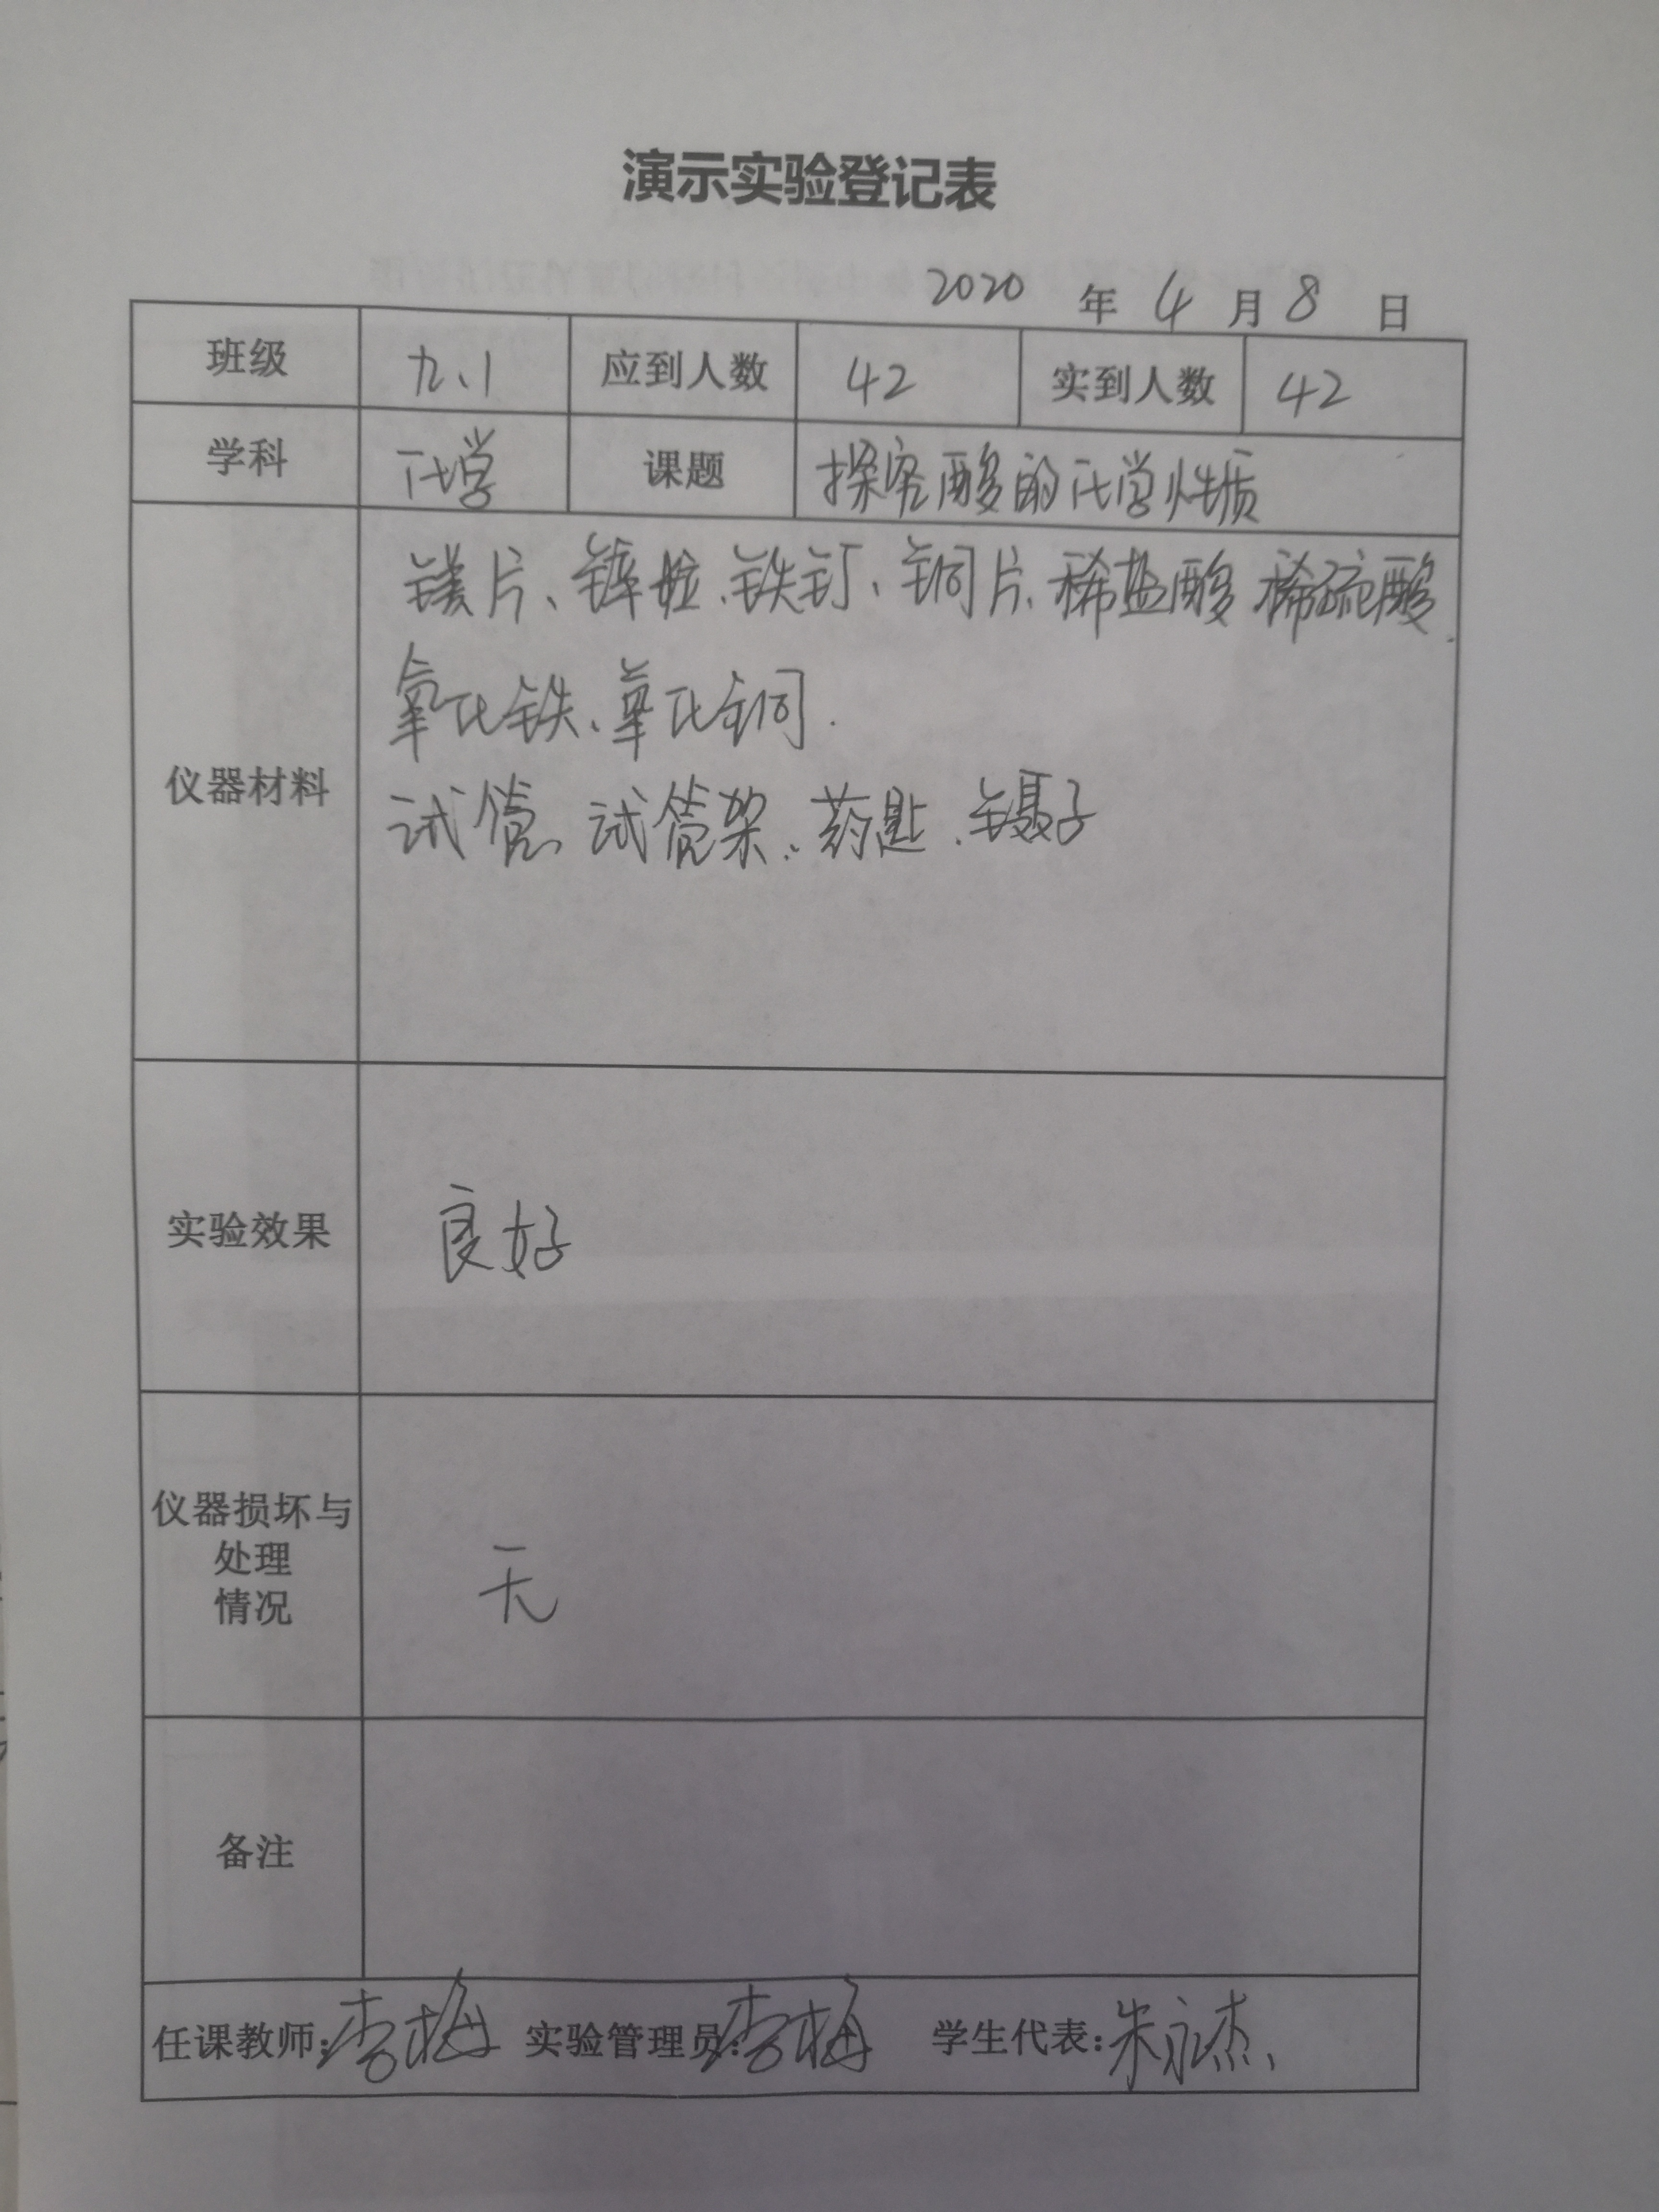 演示实验登记表
2020 年 4 月 8 日
班级 九、1 应到人数 42 实到人数 42
学科 化学 课题 探究酸的化学性质
仪器材料
镁片、锌粒、铁钉、铜片、稀盐酸 稀硫酸、
氧化铁、氧化铜.
试管、试管架、药匙、镊子
实验效果 良好
仪器损坏与
处理
情况
无
备注
任课教师:李梅 实验管理员:李梅 学生代表:朱永杰